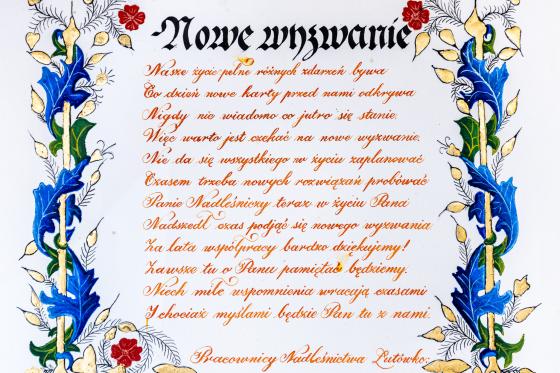 Nowe wyzwanie
Nasze życie pełne różnych zdarzeń bywa
Co dzień nowe karty przed nami odkrywa
Nigdy nie wiadomo co jutro się stanie.
Więc warto jest czekać na nowe wyzwanie.
Nie da się wszystkiego w życiu zaplanować
Czasem trzeba nowych rozwiązań próbować
Panie Nadleśniczy teraz w życiu Pana
Nadszedł czas podjąć się nowego wyzwania
Za lata współpracy bardzo dziękujemy!
Zawsze tu o Panu pamiętać będziemy.
Niech miłe wspomnienia wracają czasami
I chociaż myślami będzie Pan tu z nami.
Pracownicy Nadleśnictwa Lutówko.